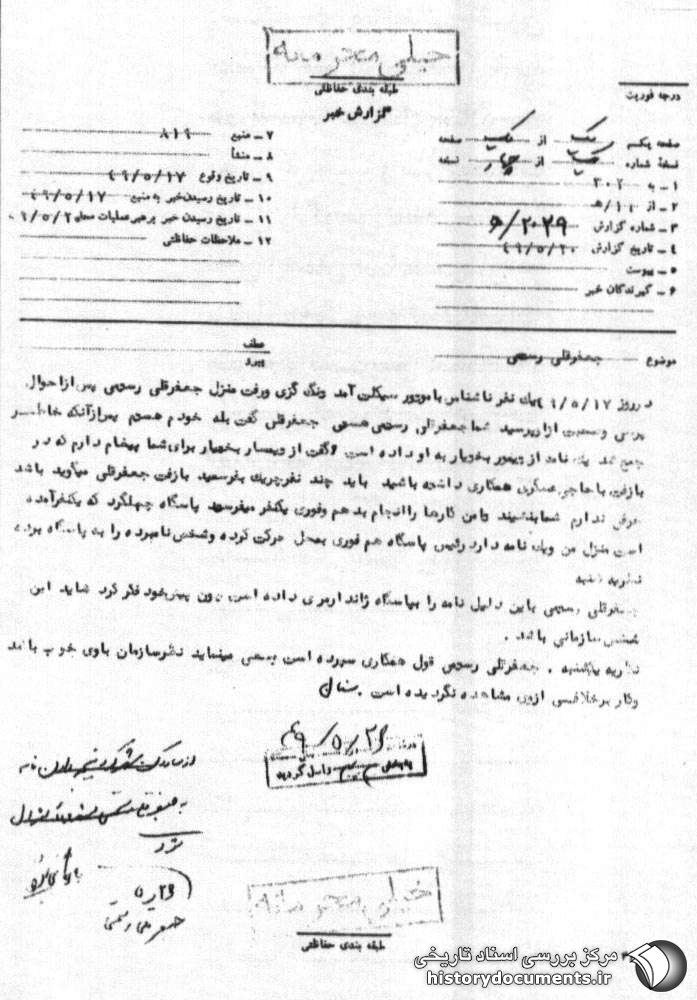 خیلی محرمانه
طبقه بندی حفاظتی
گزارش خبر
درجه فوریت
صفحه یک از یک صفحه
نسخه شماره یک از چهار نسخه
۱ ــ به ۳۰۲
۲ ــ از ۱۰/ه‍
۳ ــ شماره گزارش ۶/۲۰۲۹
۴ ــ تاریخ گزارش ۴۹/۵/۲۰
۵ ــ پیوست
۶ ــ گیرندگان خبر
۷ ــ منبع ۸۱۹
۸ ــ منشأ
۹ ــ تاریخ وقوع ۴۹/۵/۱۷
۱۰ ــ تاریخ رسیدن خبر به منبع ۴۹/۵/۱۷
۱۱ ــ تاریخ رسیدن خبر برهبر عملیات محل
۱۲ ــ ملاحظات حفاظتی
موضوع جعفرقلی رستمی
عطف
پیرو
در روز ۴۹/۵/۱۷ یک نفر ناشناس با موتور سیکلت آمد ورفت منزل جعفرقلی رستمی پس از احوال
پرسی از او پرسید شما جعفرقلی رستمی هستی جعفرقلی گفت بله خودم هستم پس از آنکه خاطر
جمع شد یک نامه از تیمور بختیار به او داده است و گفت از تیمسار بختیار برای شما پیغام دارم که در
بازفت با همکاری داشته باشید باید چند نفر چریک بفرستید بازفت جعفرقلی میگوید باشد
عرض ندارم شما بنشینید تا من کارها را انجام بدهم وفوری یکنفر میفرستد پاسگاه چهلگرد که یکنفر آمده
است منزل من ویک نامه دارد رئیس پاسگاه هم فوری بمحل حرکت کرده وشخص نامبرده را به پاسگاه برده
نظریه شنبه
جعفرقلی رستمی باین دلیل نامه را بپاسگاه ژاندارمری داده است چون پیش خود فکر کرد شاید این
شخص سازمانی باشد .
نظریه یکشنبه . جعفرقلی رستمی قول همکاری سپرده است وسعی مینماید نظر سازمان باوی خوب باشد
وکار برخلافی ازوی مشاهده نگردیده است .
۴۹/۵/۲۶
واصل گردید
۵/۲۶
جعفرقلی رستمی
خیلی محرمانه
طبقه بندی حفاظتی
مرکز بررسی اسناد تاریخی
historydocuments.ir